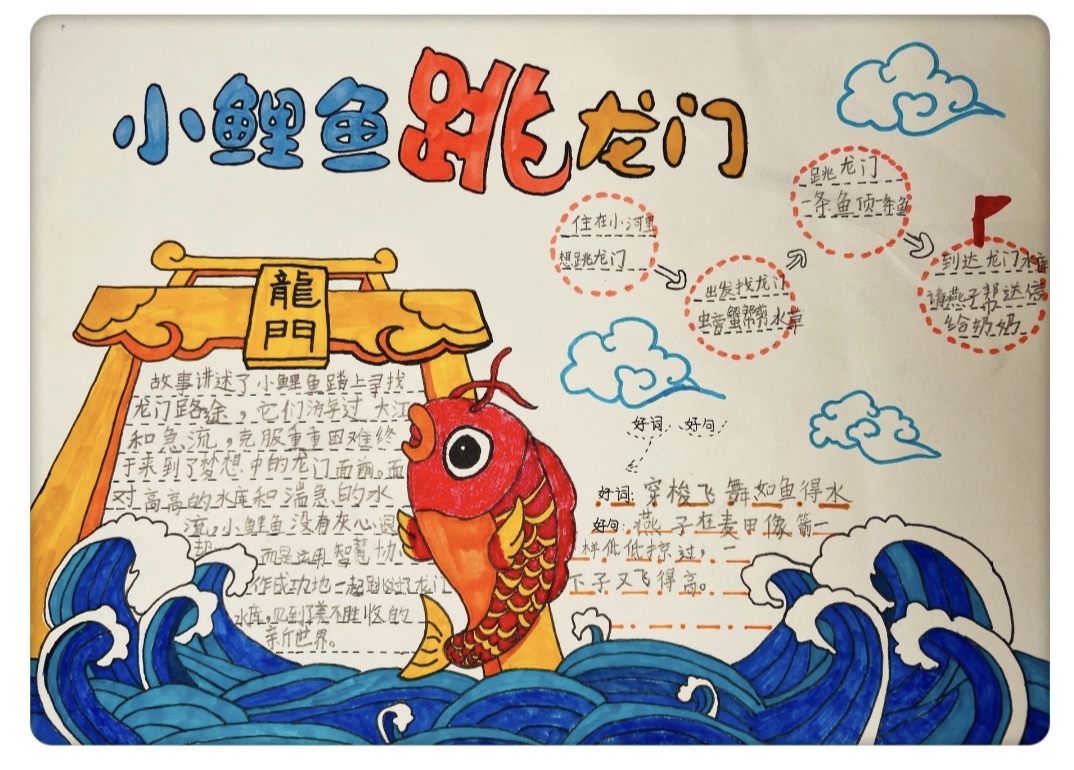 小鲤鱼跳龙门
龍
門
故事讲述了小鲤鱼踏上寻找
龙门路途，它们游过大江
和急流，克服重重困难终
于来到了梦想中的龙门面前。面
对高高的水库和湍急的水
流，小鲤鱼没有灰心退
却，而是运用智慧协
作成功地一起跳过龙门
水库，见到了美不胜收的
新世界。
住在小河里
想跳龙门
出发找龙门
螃蟹帮剪水草
跳龙门
一条鱼顶一条鱼
到达龙门水库
请燕子帮送信
给奶奶
好词、好句
好词：穿梭飞舞如鱼得水
好句：燕子在麦田像箭一
样低低掠过，一
下子又飞得高。